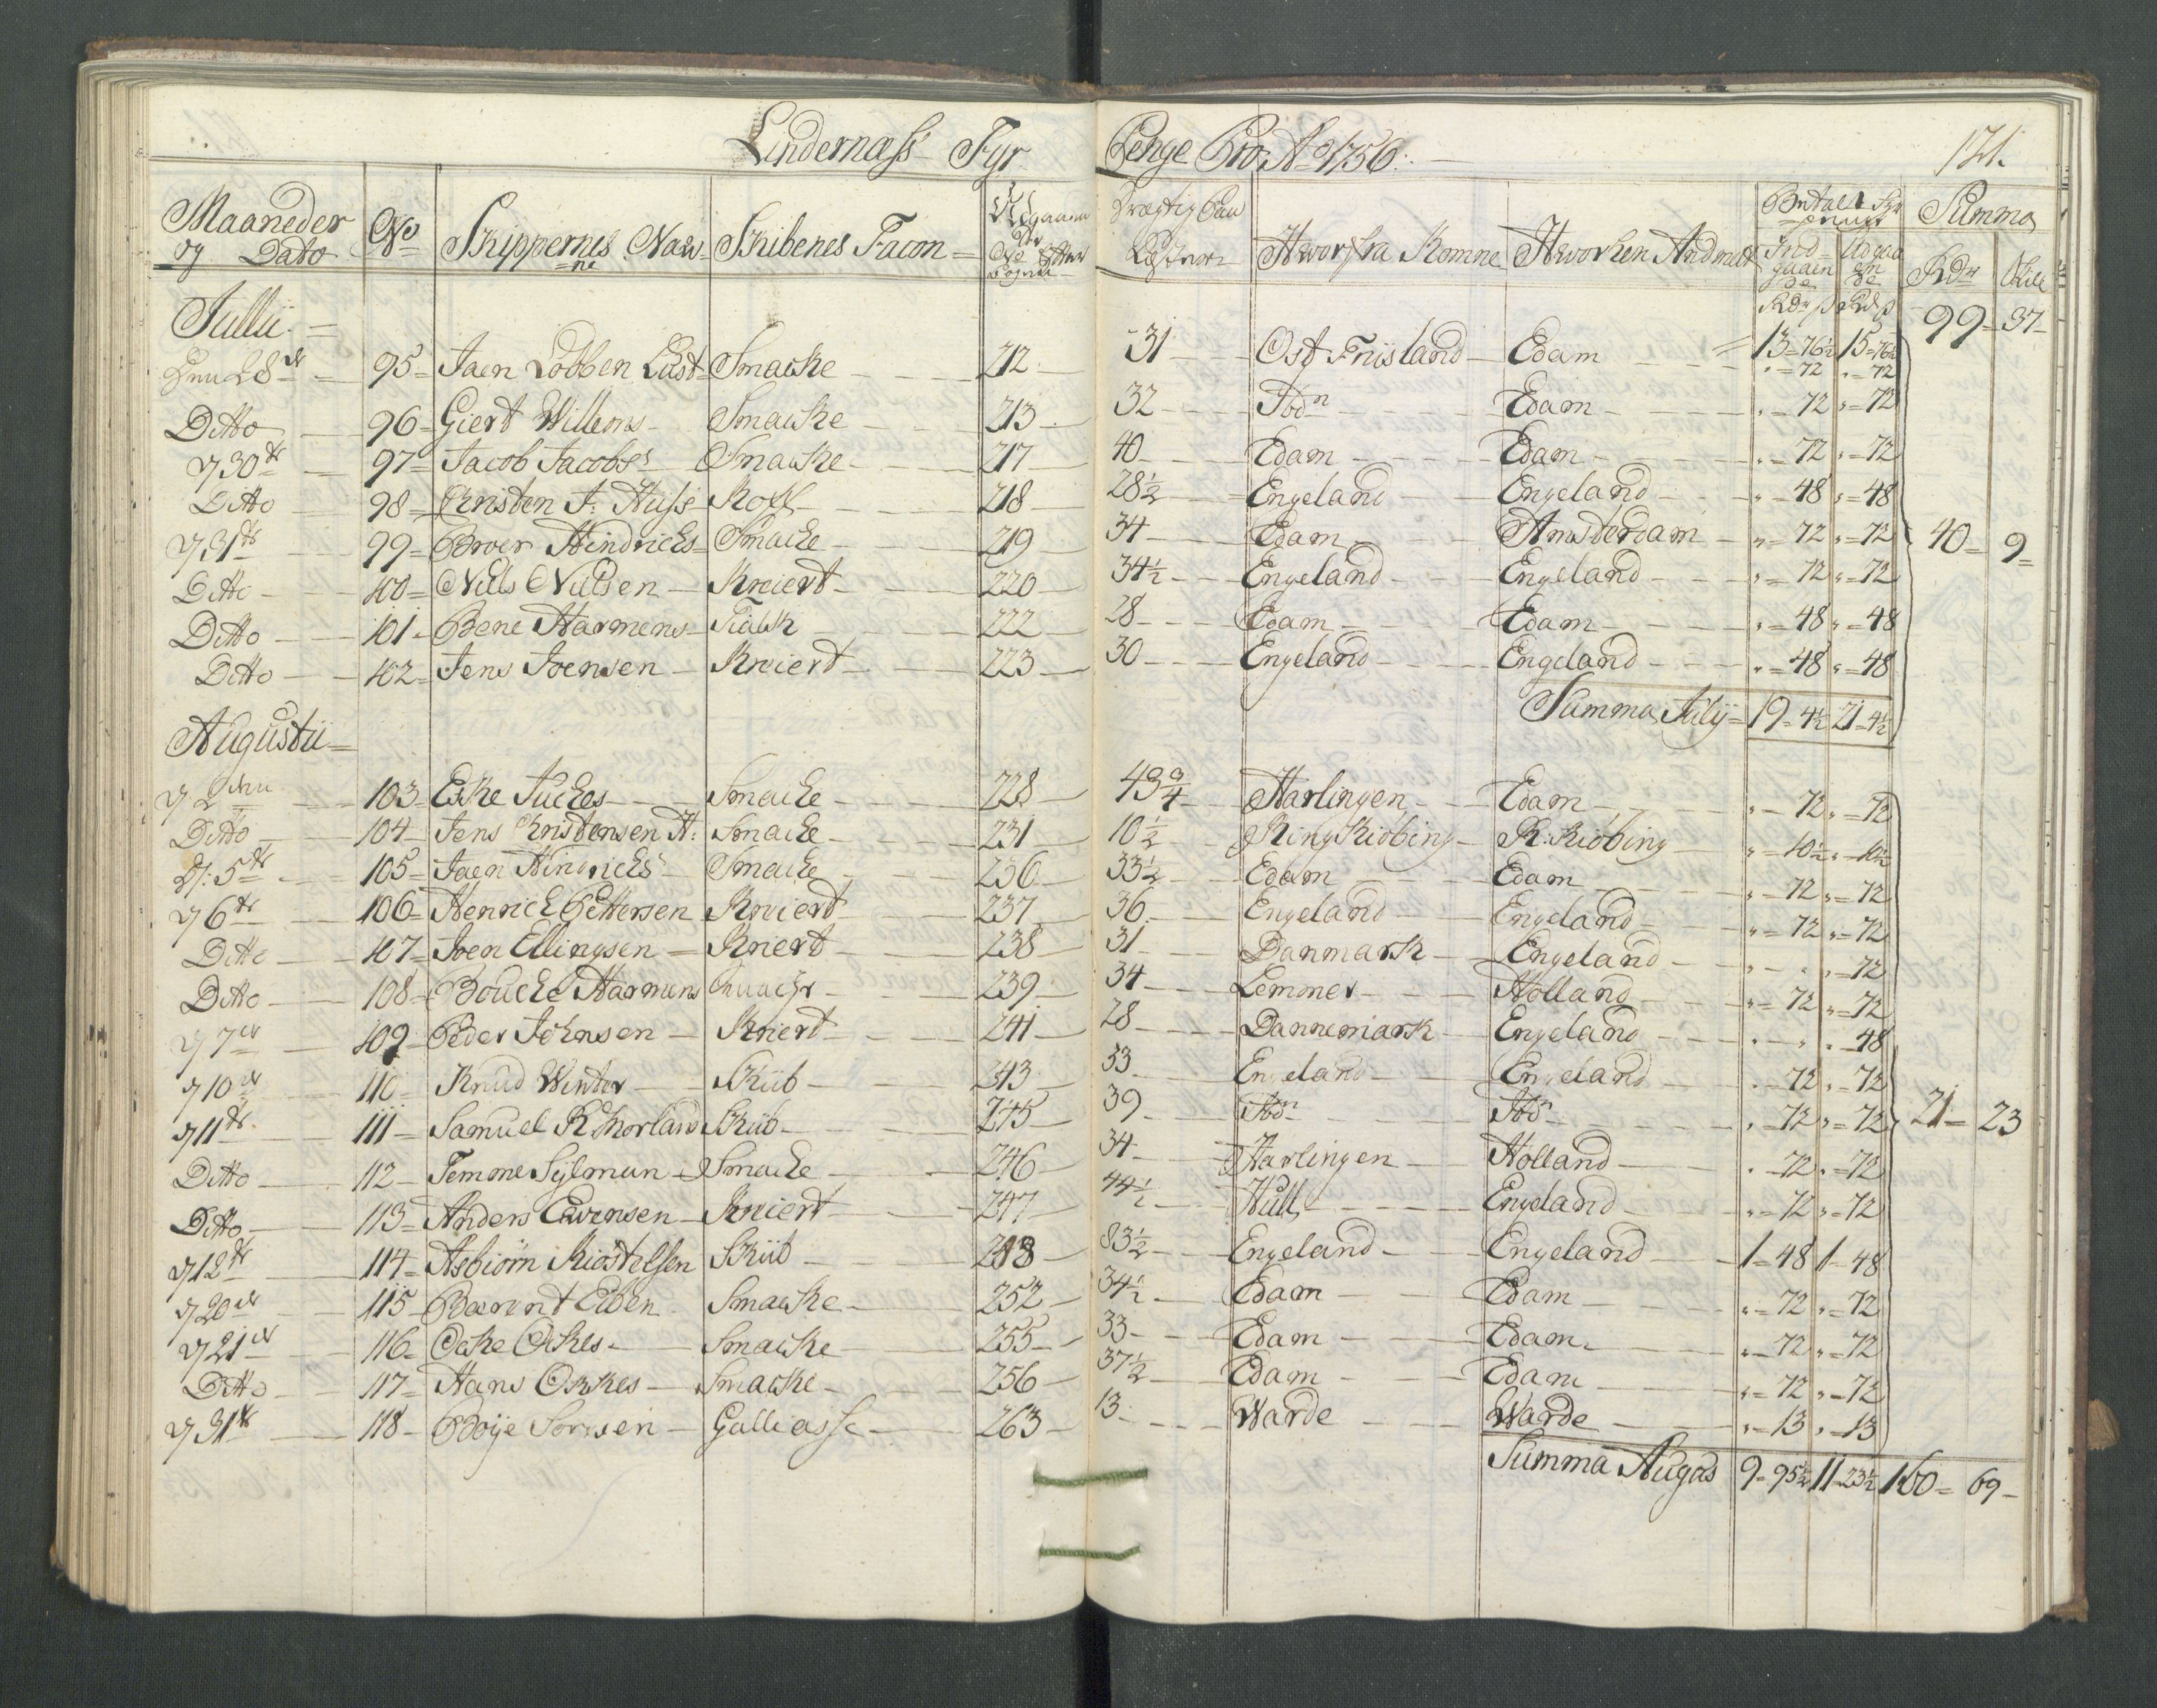 Lindernæss Fyr Penge Pro Ao 1756.
121.
Maaneder og Dato No Skippernes Nawne Skibenes Facon Drægtig Hworfra Komne Hworhen Andmelt Betalt Fyr Penge Summa
Ind-gaaende Udgaaende Rdr Skill
Rdr ß Rd ß
Julii 99 - 37
13 = 76½ 15 = 76½
Den 28de 95 Jaen Lobben Last Smacke 212 31 Ost Friisland Edam " = 72 " = 72
Ditto 96 Giert Willems Smacke 213 32 Ibdn Edam " = 72 " = 72
d 30te 97 Jacob Jacobs Smacke 217 40 Edam Edam " = 72 " = 72
Ditto 98 Christen J: Huss Koff 218 28½ Engeland Engeland " = 48 " = 48
d 31te 99 Broer Hindrichs Smacke 219 34 Edam Amsterdam " = 72 " = 72 40 = 9
Ditto 100 Nills Nillsen Kreiert 220 34½ Engeland Engeland " = 72 " = 72
Ditto 101 Bene Harmens Tialck 222 28 Edam Edam " = 48 " = 48
Ditto 102 Jens Joensen Kreiert 223 30 Engeland Engeland " = 48 " = 48
Summa Julij 19 = 4½ 21 = 4½
Augustii
d 2den 103 Eske Juckes Smacke 228 43¾ Harlingen Edam " = 72 " = 72
Ditto 104 Jens Christensen H: Smacke 231 10½ Ring Kiøbing R: Kiøbing " = 10½ " = 10½
d: 5te 105 Jaen Hinrichs Smacke 236 33½ Edam Edam " = 72 " = 72
d 6te 106 Henrich Pettersen Kreiert 237 36 Engeland Engeland " = 72 " = 72
Ditto 107 Joen Ellingsen Kreiert 238 31 Danmark Engeland " - " " = 72
Ditto 108 Boucke Harmens 239 34 Lemmer Holland " = 72 " = 72
d 7de 109 Peder Johnsen Kreiert 241 28 Dannemark Engeland " - " " = 48
d 10de 110 Knud Winter Skiib 243 33 Engeland Engeland " 72 " = 72
d 11te 111 Samuel R Norland Skiib 245 39 Ibdn Ibdn " = 72 " = 72 21 = 23
Ditto 112 Temme Sylman Smacke 246 34 Harlingen Holland " 72 " = 72
Ditto 113 Anders Ewensen Kreiert 247 44½ Hull Engeland " = 72 " = 72
d 12te 114 Asbiörn Kiöstelsen Skiib 248 83½ Engeland Engeland 1 = 48 1 = 48
d 20de 115 Baerent Eiben Smacke 252 34½ Edam Edam " = 72 " = 72
d 21de 116 Ocke Ockes Smacke 255 33 Edam Edam " = 72 " = 72
Ditto 117 Hans Ockes Smacke 256 37½ Edam Edam " = 72 " = 72
d 31te 118 Boije Sörnsen Galleasse 263 13 Warde Warde " = 13 " = 13
Summa Augus 9 = 95½ 11 = 23½ 160 = 69